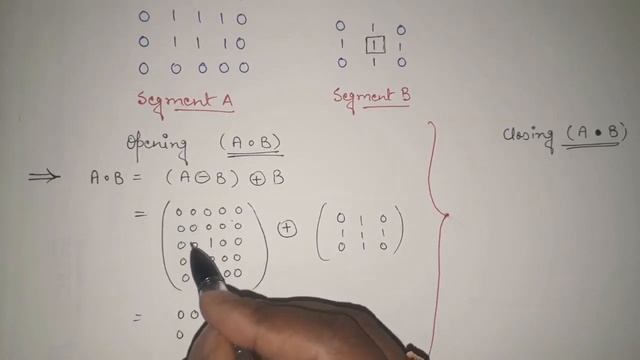 0 1 1 1 0
0 1 1 1 0
0 0 0 0 0
Segment A
0 1 0
1 1 1
0 1 0
Segment B
Opening (A ∘ B)
⇒ A∘B = (A ⊖ B) ⊕ B
= ( 0 0 0 0 0
0 0 0 0 0
0 0 1 0 0
0 0 0 0
0 0 0 ) ⊕ ( 0 1 0
1 1 1
0 1 0 )
= 0 0
0
Closing (A • B)